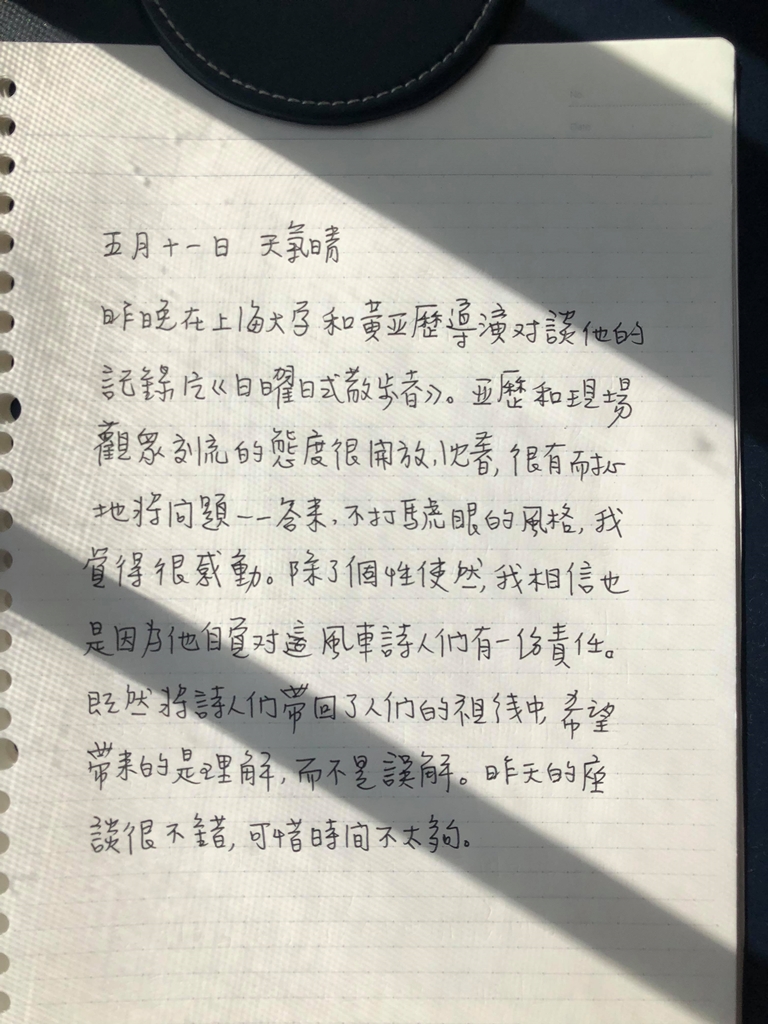 五月十一日 天氣晴
昨晚在上海大学和黃亚歷導演对談他的
記錄片《日曜日式散步者》。亚歷和現場
觀眾交流的態度很開放,沈着,很有耐心
地将问題一一答来,不打馬虎眼的風格,我
覚得很感動。除了個性使然,我相信也
是因为他自覚对這風車詩人们有一份責任。
既然将詩人们带回了人们的視线中,希望
带来的是理解,而不是誤解。昨天的座
談很不錯,可惜時间不太夠。